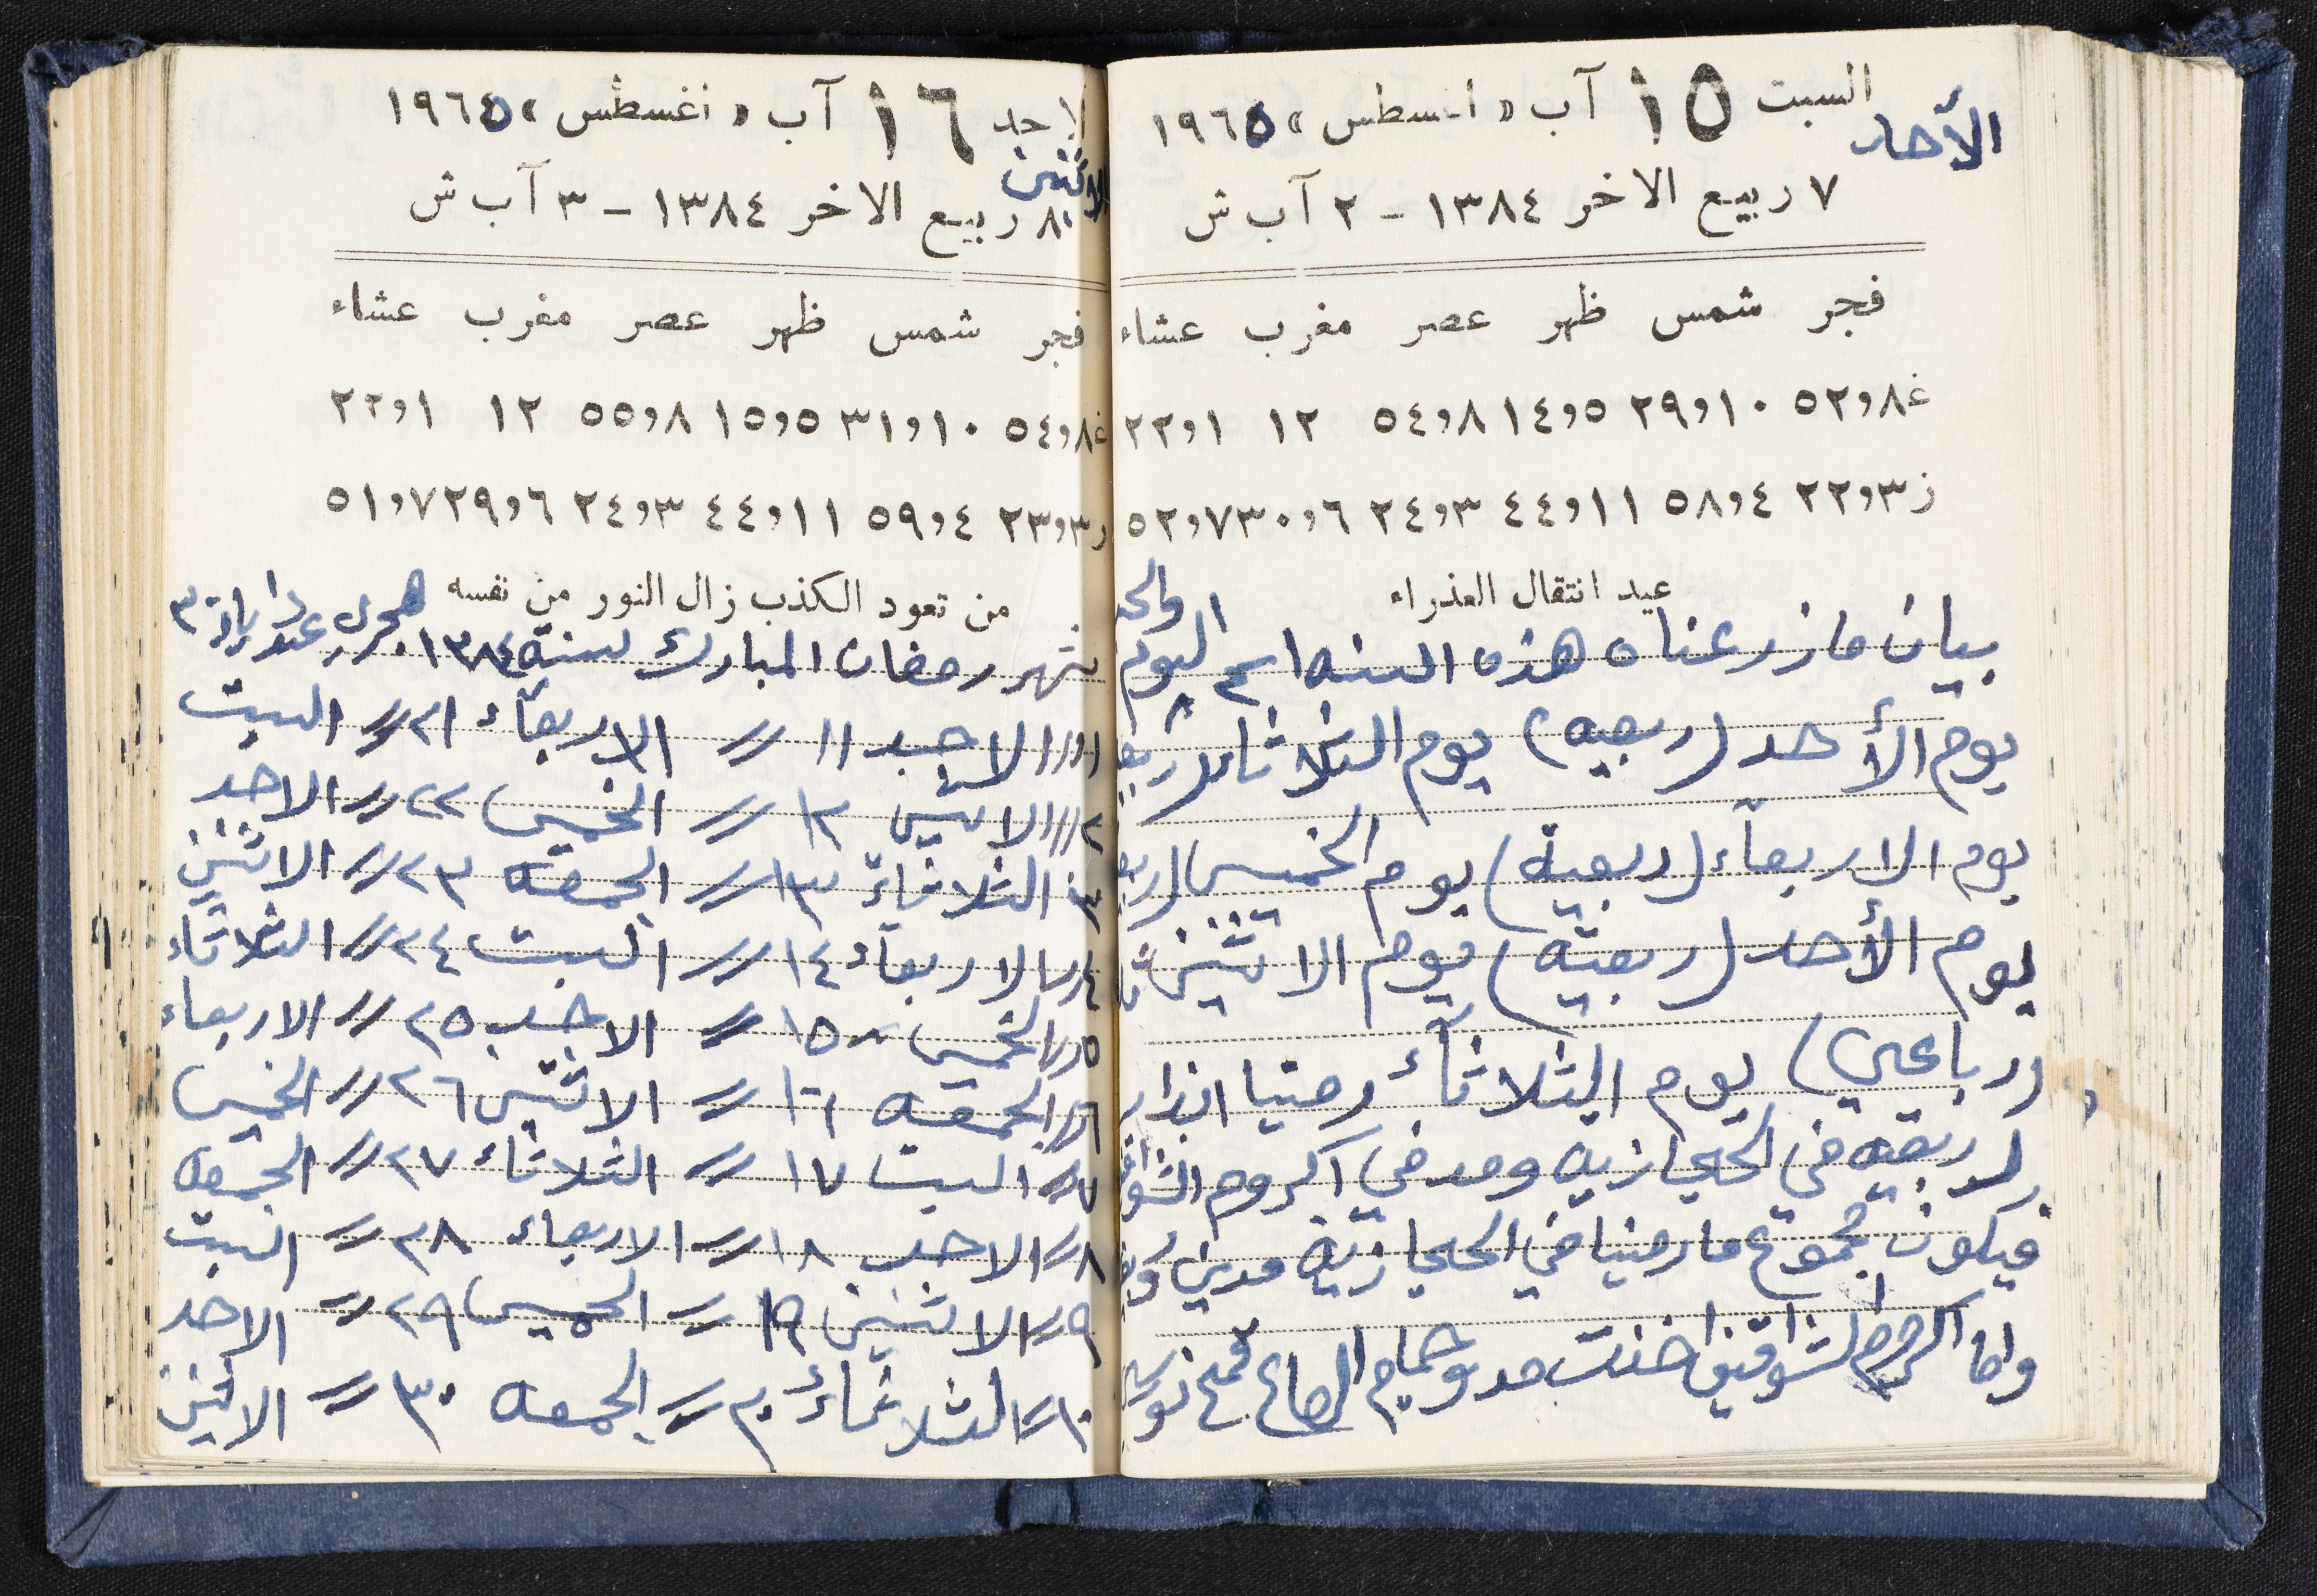 السبت ١٥ آب «اغسطس» ١٩٦٥
الأحد
٧ ربيع الاخر ١٣٨٤ - ٢ آب ش
فجر شمس ظهر عصر مغرب عشاء
غ ٥٢و٨ ٢٩و١٠ ١٤و٥ ٥٤و٨ ١٢ ٢٢و١
ز ٢٢و٣ ٥٨و٤ ٤٤و١١ ٢٤و٣ ٣٠و٦ ٥٢و٧
عيد انتقال العذراء
بيان ما زرعناه هذه السنه اليوم
يوم الأحد (ربعيه) يوم الثلاثاء
يوم الاربعاء (ربعية) يوم الخميس
يوم الأحد (ربعية) يوم الاثنين
(رباعي) يوم الثلاثاء رمينا
ربعيه في الحجازيه ومد في اكروم
فيكون مجموع ما رمينا في الحجازية مدين
واما اخذت مد الصاع قمح
الاحد ١٦ آب «اغسطس» ١٩٦٥
الاثنين
٨ ربيع الاخر ١٣٨٤ - ٣ آب ش
فجر شمس ظهر عصر مغرب عشاء
غ ٥٤و٨ ٣١و١٠ ١٥و٥ ٥٥و٨ ١٢ ٢٢و١
ز ٢٣و٣ ٥٩و٤ ٤٤و١١ ٢٤و٣ ٢٩و٦ ٥١و٧
من تعود الكذب زال النور من نفسه
شهر رمضان المبارك لسنة ١٣٨٤ هجري
١ // الاحد ١١ // الاربعاء ٢١ // السبت
٢ // الاثنين ١٢ // الخميس ٢٢ // الاحد
٣ // الثلاثاء ١٣ // الجمعه ٢٣ // الاثنين
٤ // الاربعاء ١٤ // السبت ٢٤ // الثلاثاء
٥ // الخميس ١٥ // الاحد ٢٥ // الاربعاء
٦ // الجمعه ١٦ // الاثنين ٢٦ // الخميس
٧ // السبت ١٧ // الثلاثاء ٢٧ // الجمعه
٨ // الاحد ١٨ // الاربعاء ٢٨ // السبت
٩ // الاثنين ١٩ // الخميس ٢٩ // الاحد
١٠ // الثلاثاء ٢٠ // الجمعه ٣٠ // الاثنين